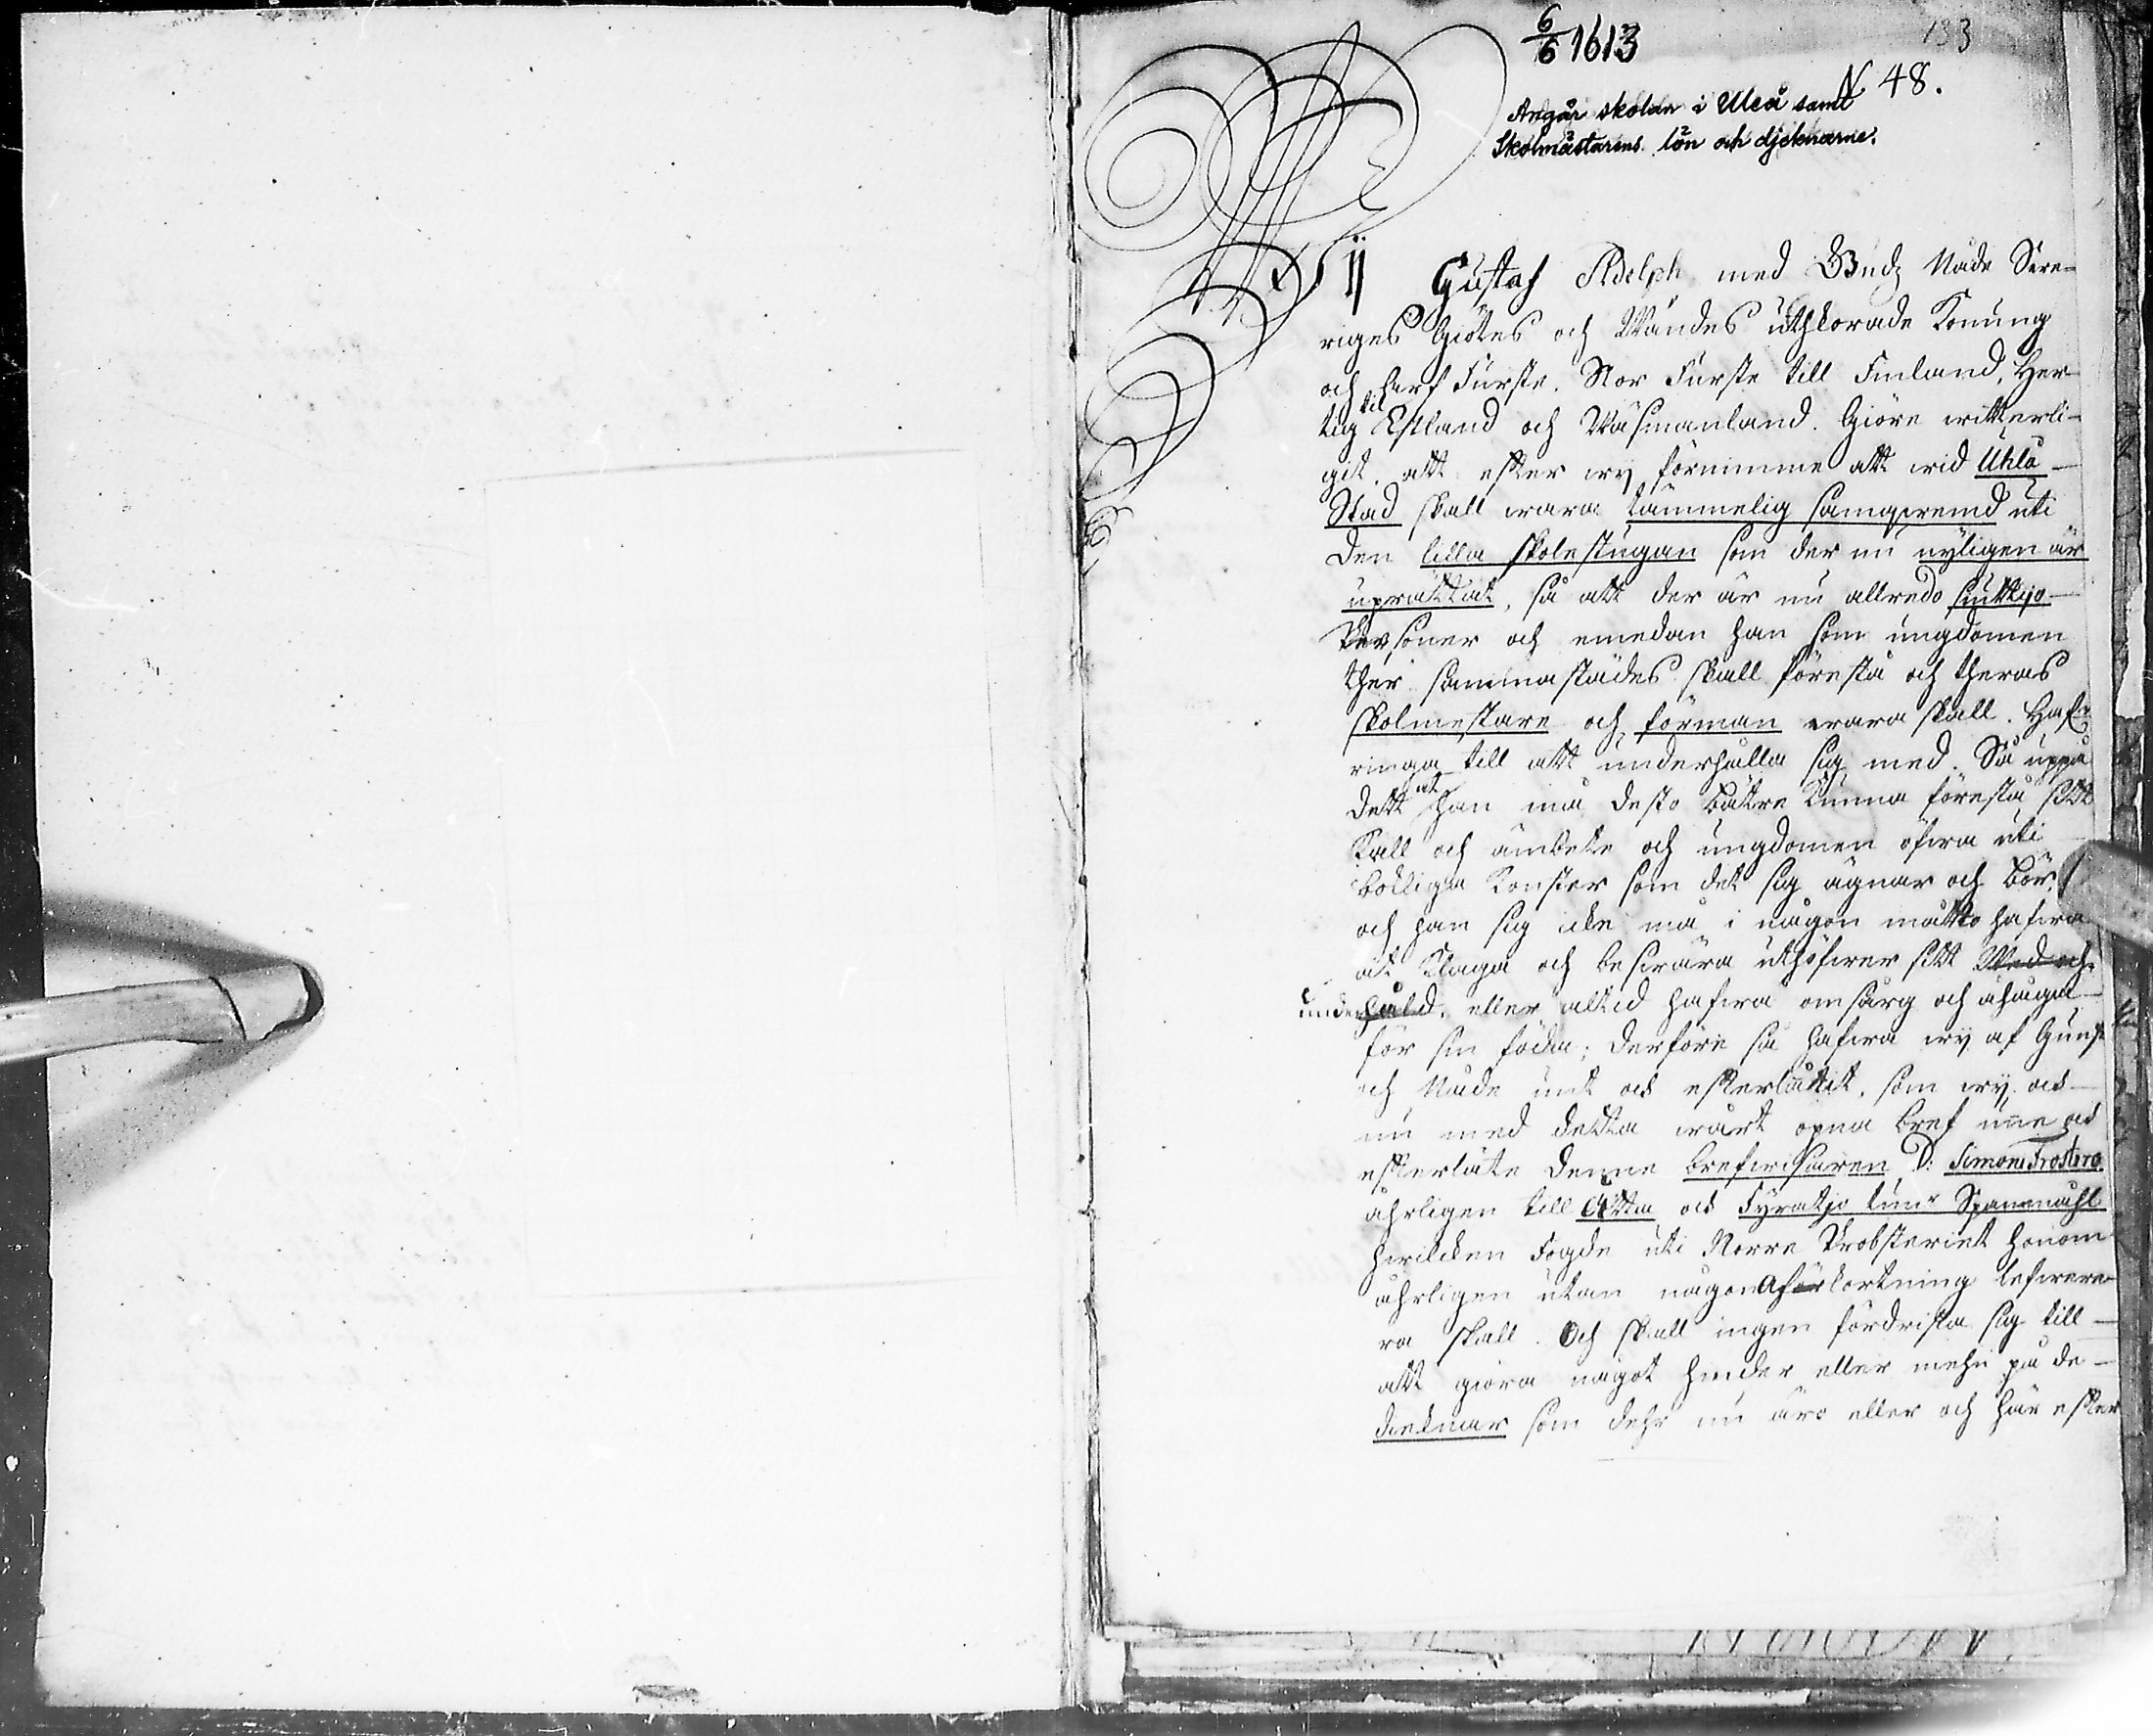 6/6 1613
133
N 48.
Angår skolan i Uleå samt
Skolmästarens lön och djeknarne.
Wij Gustaf Adolph med Gudz Nåde Swe-
riges Giötes och Wändes uthkorade Konung
och Arf Furste. Stor Furste till Finland, Her-
tig til Estland och Wäsmanland. Giöre witterli-
git, att efter wy förnimme att wid Uhlå
Stad skall wara tämmelig samqwemd uti
den lilla skolestugan som der nu nyligen är
uprättat, så att der är nu allredo siuttijo
Personer och emedan han som ungdomen
ther sammastädes skall förestå och theras
skolmestare och förman wara skall. Hafr
ringa till att underhålla sig med. Så uppå
dett at han må desto bätre kunna förestå sitt
Kall och ämbete och ungdomen öfwa uti
boklige Konster som det sig ägnar och bör,
och han sig icke må i någon motto hafwa
at klaga och beswära uthöfwer sitt Wed och
underhåld, eller altid hafwa omsårg och åhuga
för sin föda; derföre så hafwa wy af Gunst
och Nåde unt och efterlåtit, som wy ock
nu med detta wårt öpna bref unne och
efterlåte denne brefwisaren D: Simoni Frostero
åhrligen till Otta och Fyratijo tunr Spannmåhl
hwilcken Fogde uti Norre Probsteriet honom
åhrligen utan någon Afkortning lefwere-
ra skall. Och skall ingen fördrista sig till
att giöra något hinder eller mehn på de
dieknar som dehr nu äro eller och här efter